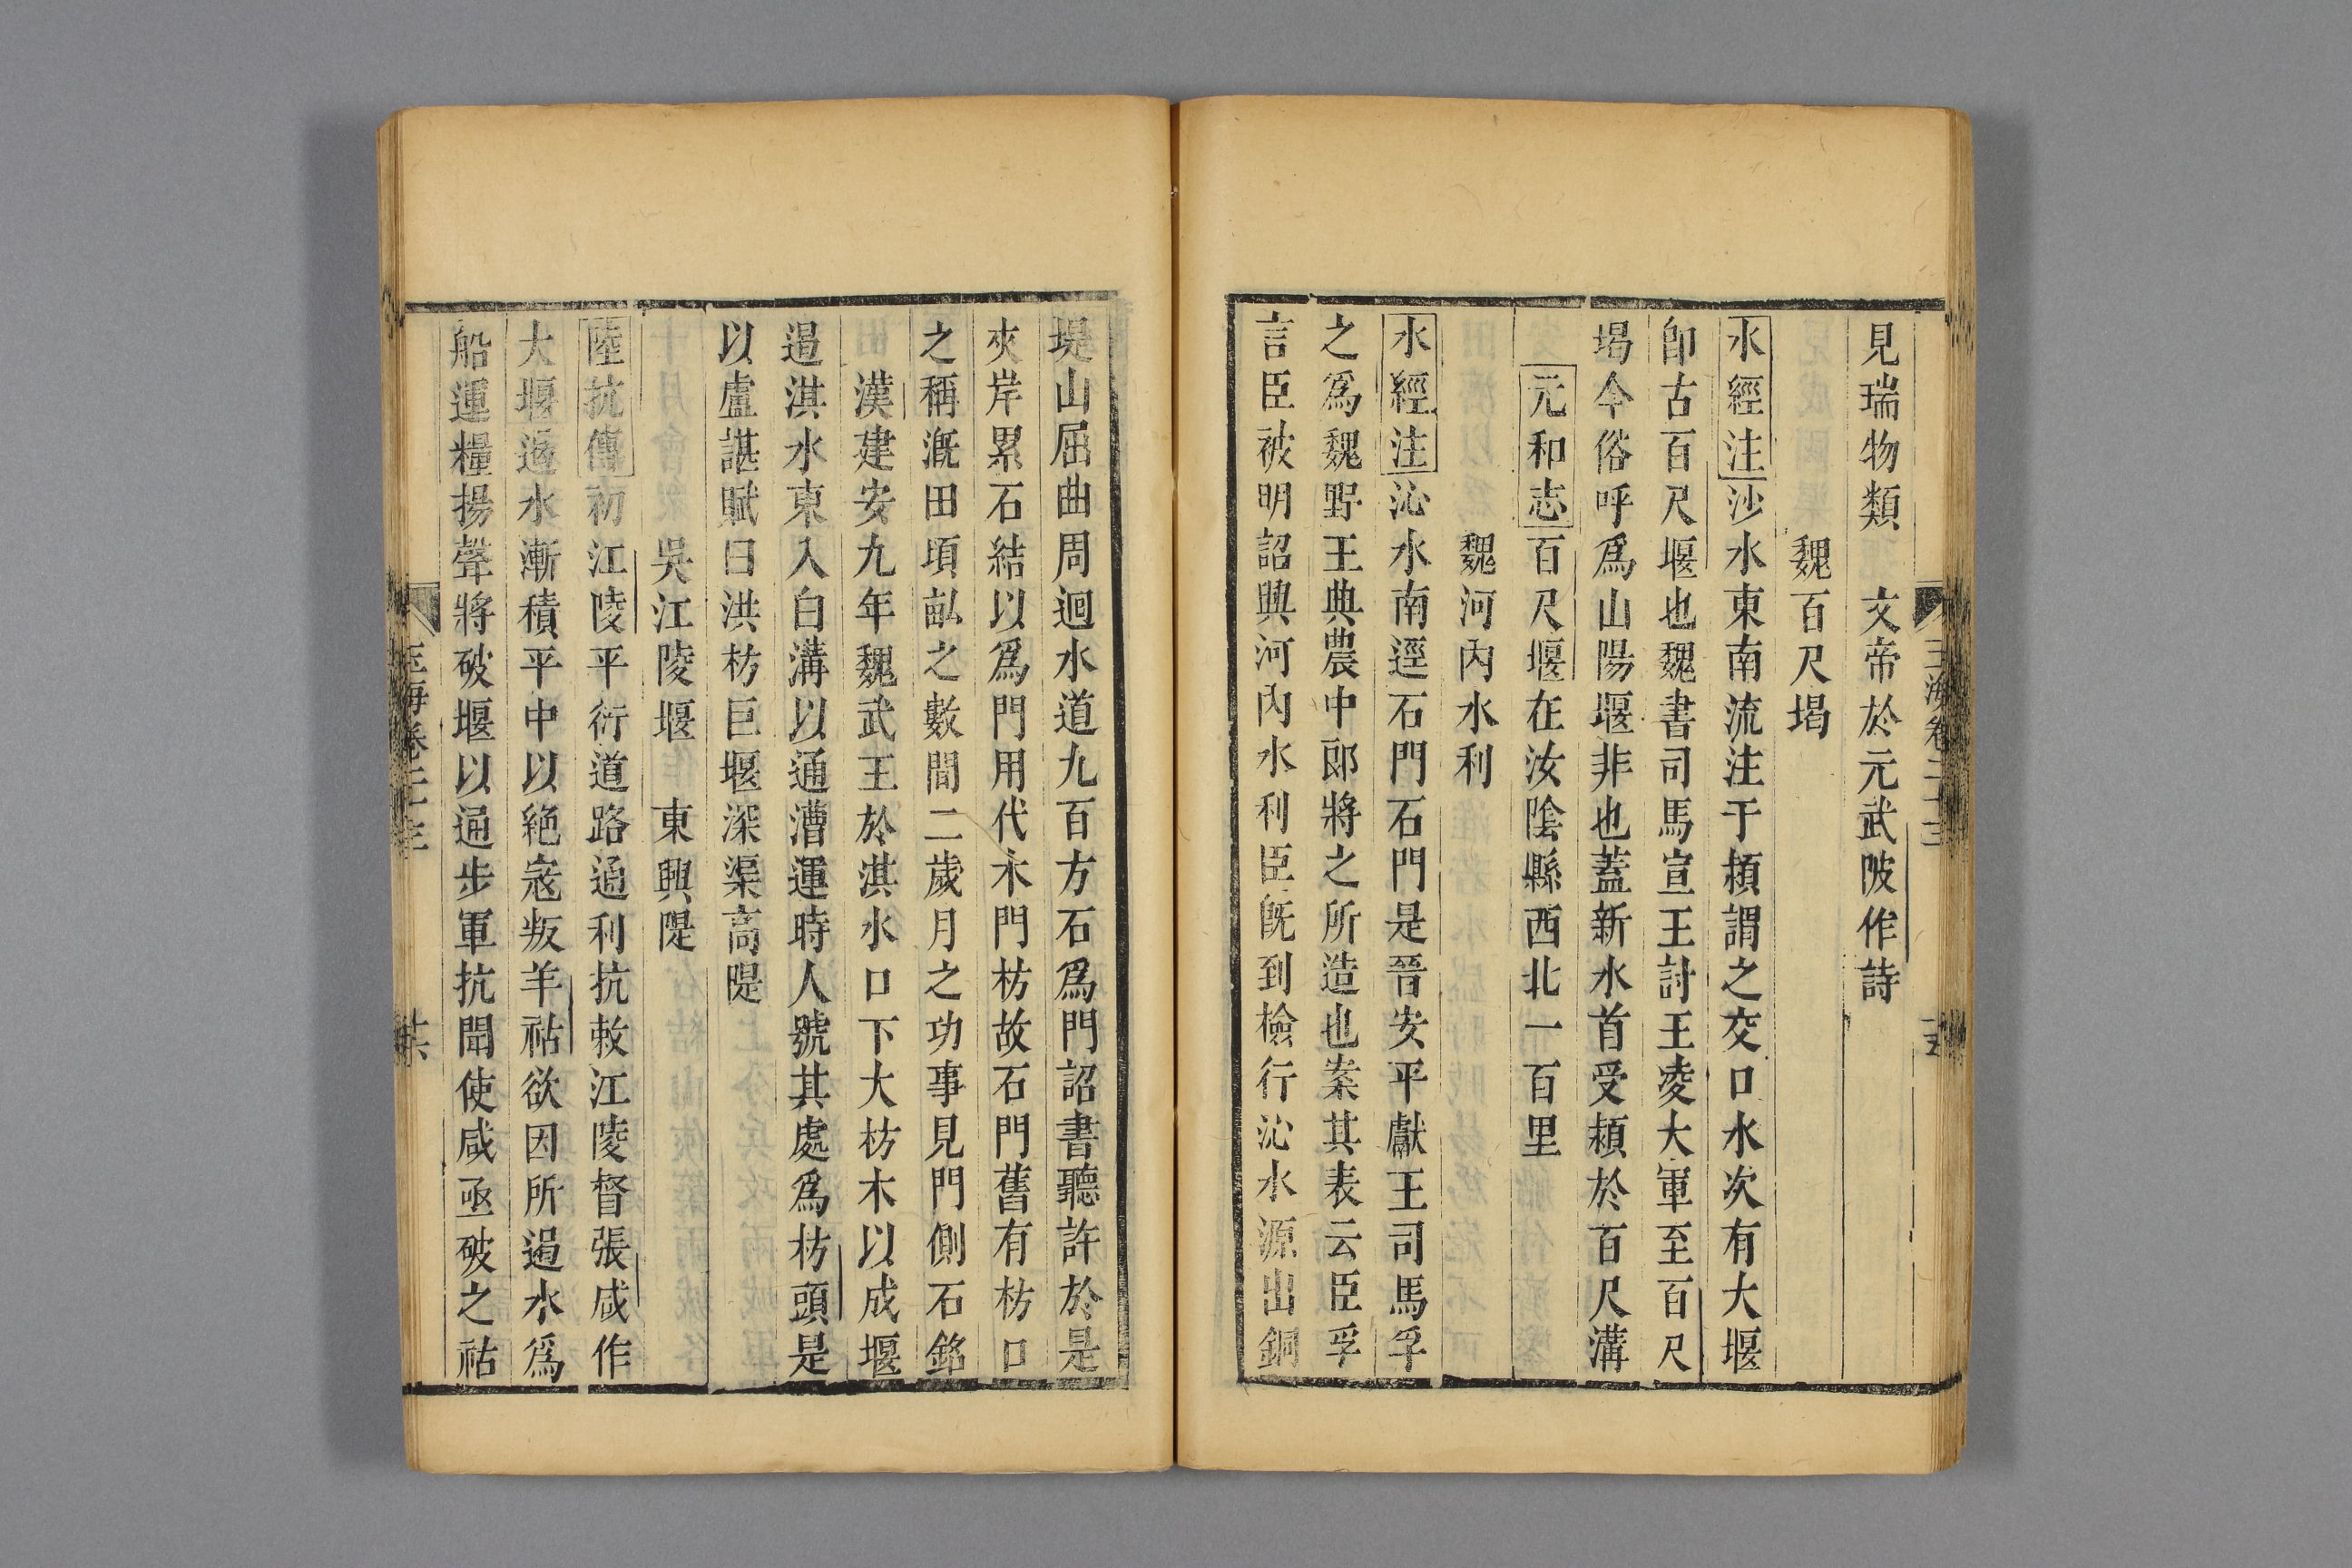 玉海卷二十三
見瑞物類　文帝於元武陂作詩
魏百尺堨
水經注沙水東南流注于潁謂之交口水次有大堰
卽古百尺堰也魏書司馬宣王討王凌大軍至百尺
堨今俗呼爲山陽堰非也蓋新水首受潁於百尺溝
元和志百尺堰在汝陰縣西北一百里
魏河內水利
水經注沁水南逕石門石門是晉安平獻王司馬孚
之爲魏野王典農中郎將之所造也案其表云臣孚
言臣被明詔興河內水利臣旣到檢行沁水源出銅
堤山屈曲周迴水道九百方石爲門詔書聽許於是
夾岸累石結以爲門用代木門枋故石門舊有枋口
之稱漑田頃畝之數間二歲月之功事見門側石銘
漢建安九年魏武王於淇水口下大枋木以成堰
遏淇水東入白溝以通漕運時人號其處爲枋頭是
以盧諶賦曰洪枋巨堰深渠高隄
吳江陵堰　東興隄
陸抗傳初江陵平衍道路通利抗敕江陵督張咸作
大堰遏水漸積平中以絕寇叛羊祜欲因所遏水爲
船運糧揚聲將破堰以通步軍抗聞使咸亟破之祜
玉海卷二十三
十六